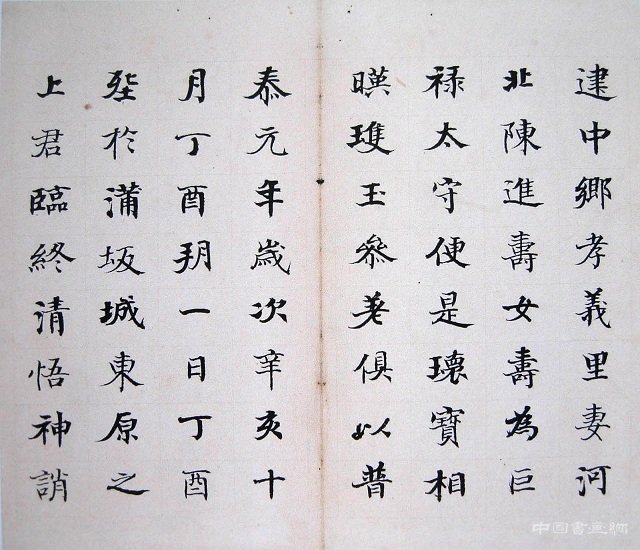 建中鄉孝義里妻河
北陳進壽女壽為巨
禄太守便是瓌寶相
暎瓊玉叅差俱以普
泰元年歲次辛亥十
月丁酉朔一日丁酉
塟於蒲坂城東原之
上君臨終清悟神誚
中国書画網